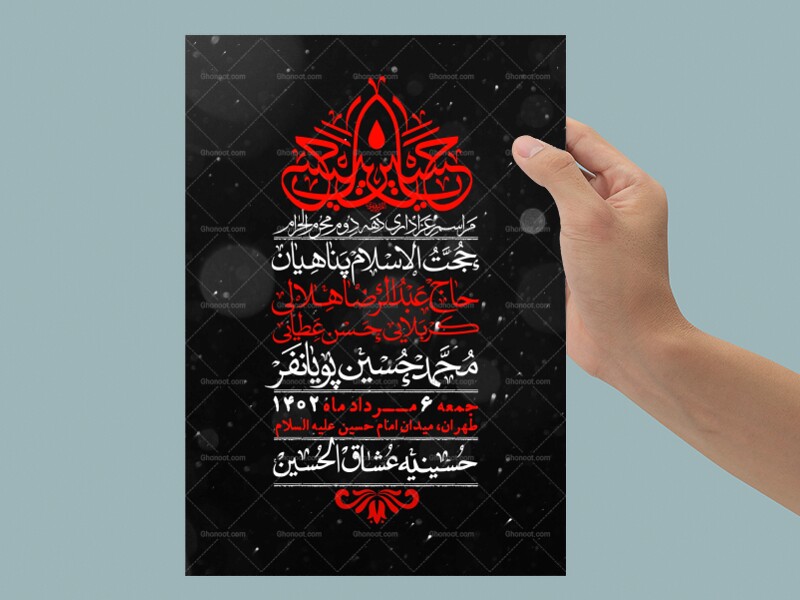 مراسم عزاداری دهه دوم محرم الحرام
حجت الاسلام پناهیان
حاج عبدالرضا هلالی
کربلایی حسن عطائی
محمدحسین پویانفر
جمعه ۶ مرداد ماه ۱۴۰۲
طهران، میدان امام حسین علیه السلام
حسینیه عشاق الحسین
Ghonoot.com